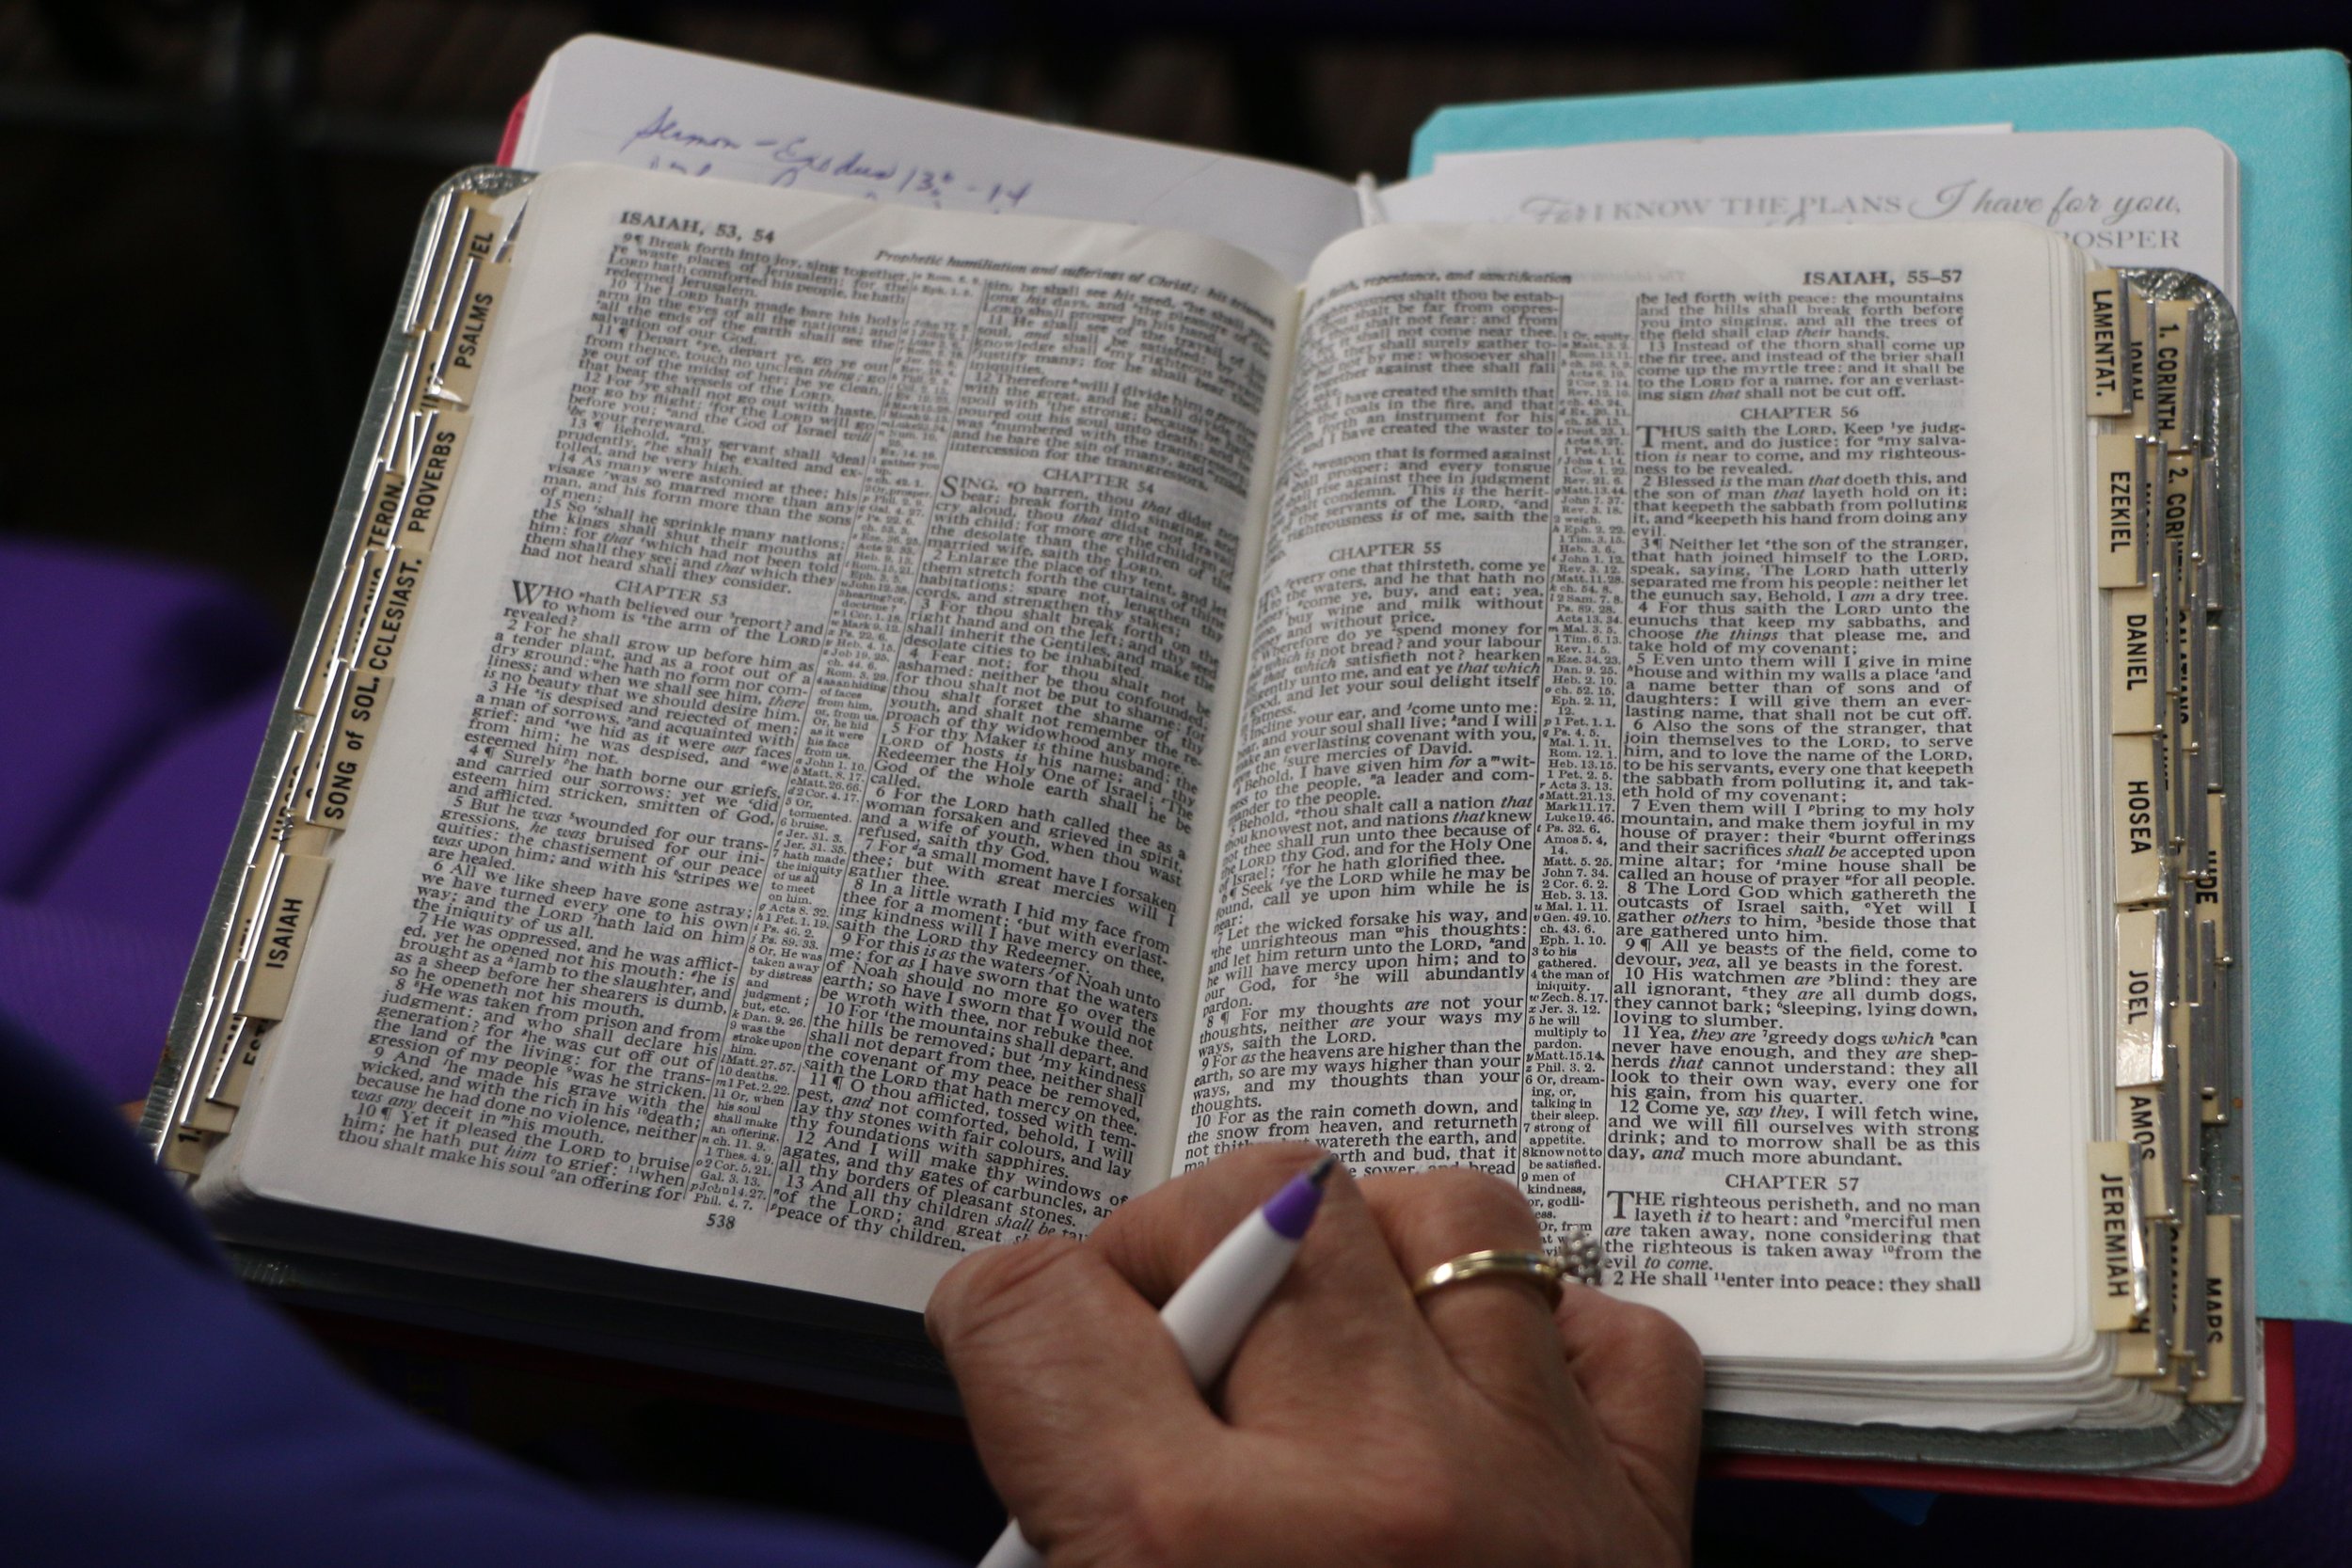 Sermon - Exodus 13 - 14
For I KNOW THE PLANS I have for you,
PROSPER
ISAIAH, 53, 54
Prophetic humiliation and sufferings of Christ:
9 ¶ Break forth into joy, sing together,
ye waste places of Jerusalem: for the
LORD hath comforted his people, he hath
redeemed Jerusalem.
10 The LORD hath made bare his holy
arm in the eyes of all the nations; and
all the ends of the earth shall see the
salvation of our God.
11 ¶ Depart ye, depart ye, go ye out
from thence, touch no unclean thing; go
ye out of the midst of her; be ye clean,
that bear the vessels of the LORD.
12 For ye shall not go out with haste,
nor go by flight: for the LORD will go
before you; and the God of Israel will
be your rereward.
13 ¶ Behold, my servant shall deal
prudently, he shall be exalted and ex-
tolled, and be very high.
14 As many were astonied at thee; his
visage was so marred more than any
man, and his form more than the sons
of men:
15 So shall he sprinkle many nations;
the kings shall shut their mouths at
him: for that which had not been told
them shall they see; and that which they
had not heard shall they consider.
CHAPTER 53
WHO hath believed our report? and
to whom is the arm of the LORD
revealed?
2 For he shall grow up before him as
a tender plant, and as a root out of a
dry ground: he hath no form nor com-
liness; and when we shall see him, there
is no beauty that we should desire him.
3 He is despised and rejected of men;
a man of sorrows, and acquainted with
grief: and we hid as it were our faces
from him; he was despised, and we
esteemed him not.
4 ¶ Surely he hath borne our griefs,
and carried our sorrows: yet we did
esteem him stricken, smitten of God,
and afflicted.
5 But he was wounded for our trans-
gressions, he was bruised for our ini-
quities: the chastisement of our peace
was upon him; and with his stripes we
are healed.
6 All we like sheep have gone astray;
we have turned every one to his own
way; and the LORD hath laid on him
the iniquity of us all.
7 He was oppressed, and he was afflict-
ed, yet he opened not his mouth: he is
brought as a lamb to the slaughter, and
as a sheep before her shearers is dumb,
so he openeth not his mouth.
8 He was taken from prison and from
judgment: and who shall declare his
generation? for he was cut off out of
the land of the living: for the trans-
gression of my people was he stricken.
9 And he made his grave with the
wicked, and with the rich in his death;
because he had done no violence, neither
was any deceit in his mouth.
10 ¶ Yet it pleased the LORD to bruise
him; he hath put him to grief: when
thou shalt make his soul an offering for
hearing? or,
doctrine?
4 as an hiding
of faces
from him,
or, from us.
Or, he hid
as it were
his face
from us.
a John 1. 10.
b Matt. 8. 17.
c Matt. 26. 66.
d 2 Cor. 4. 17.
5 Or,
tormented.
6 bruise.
e Jer. 31. 3.
f Jer. 31. 35.
7 hath made
the iniquity
of us all
to meet
on him.
g Acts 8. 32.
h 1 Pet. 1. 19.
i Ps. 46. 2.
j Ps. 89. 33.
8 Or, He was
taken away
by distress
and
judgment;
but, etc.
k Dan. 9. 26.
9 was the
stroke upon
him.
l Matt. 27. 57.
10 deaths.
m 1 Pet. 2. 22.
11 Or, when
his soul
shall make
an offering.
n ch. 11. 9.
1 Thes. 4. 9.
o 2 Cor. 5. 21.
Gal. 3. 13.
p John 14. 27.
Phil. 4. 7.
sin, he shall see his seed, he shall pro-
long his days, and the pleasure of the
LORD shall prosper in his hand.
11 He shall see of the travail of his
soul, and shall be satisfied: by his
knowledge shall my righteous servant
justify many; for he shall bear their
iniquities.
12 Therefore will I divide him a portion
with the great, and he shall divide the
spoil with the strong; because he hath
poured out his soul unto death: and he
was numbered with the transgressors;
and he bare the sin of many, and made
intercession for the transgressors.
CHAPTER 54
SING, O barren, thou that didst not
bear; break forth into singing, and
cry aloud, thou that didst not travail
with child: for more are the children of
the desolate than the children of the
married wife, saith the LORD.
2 Enlarge the place of thy tent, and let
them stretch forth the curtains of thine
habitations: spare not, lengthen thy
cords, and strengthen thy stakes;
3 For thou shalt break forth on the
right hand and on the left; and thy seed
shall inherit the Gentiles, and make the
desolate cities to be inhabited.
4 Fear not; for thou shalt not be
ashamed: neither be thou confounded;
for thou shalt not be put to shame: for
thou shalt forget the shame of thy
youth, and shalt not remember the re-
proach of thy widowhood any more.
5 For thy Maker is thine husband; the
LORD of hosts is his name; and thy
Redeemer the Holy One of Israel; The
God of the whole earth shall he be
called.
6 For the LORD hath called thee as a
woman forsaken and grieved in spirit,
and a wife of youth, when thou wast
refused, saith thy God.
7 For a small moment have I forsaken
thee; but with great mercies will I
gather thee.
8 In a little wrath I hid my face from
thee for a moment; but with everlast-
ing kindness will I have mercy on thee,
saith the LORD thy Redeemer.
9 For this is as the waters of Noah unto
me: for as I have sworn that the waters
of Noah should no more go over the
earth; so have I sworn that I would not
be wroth with thee, nor rebuke thee.
10 For the mountains shall depart, and
the hills be removed; but my kindness
shall not depart from thee, neither shall
the covenant of my peace be removed,
saith the LORD that hath mercy on thee.
11 ¶ O thou afflicted, tossed with tem-
pest, and not comforted, behold, I will
lay thy stones with fair colours, and lay
thy foundations with sapphires.
12 And I will make thy windows of
agates, and thy gates of carbuncles, and
all thy borders of pleasant stones.
13 And all thy children shall be
of the LORD; and great
peace of thy children.
538
repentance, and sanctification
ISAIAH, 55–57
shalt thou be estab-
be far from oppres-
shalt not fear: and from
it shall not come near thee.
they shall surely gather to-
not by me: whosoever shall
together against thee shall fall
I have created the smith that
the coals in the fire, and that
forth an instrument for his
and I have created the waster to
weapon that is formed against
shall prosper; and every tongue
shall rise against thee in judgment
condemn. This is the herit-
the servants of the LORD, and
righteousness is of me, saith the
CHAPTER 55
every one that thirsteth, come ye
to the waters, and he that hath no
come ye, buy, and eat; yea,
buy wine and milk without
money and without price.
Wherefore do ye spend money for
which is not bread? and your labour
which satisfieth not? hearken
unto me, and eat ye that which
good, and let your soul delight itself
fatness.
Incline your ear, and come unto me:
and your soul shall live; and I will
an everlasting covenant with you,
the sure mercies of David.
Behold, I have given him for a wit-
ness to the people, a leader and com-
mander to the people.
Behold, thou shalt call a nation that
thou knowest not, and nations that knew
not thee shall run unto thee because of
the LORD thy God, and for the Holy One
of Israel; for he hath glorified thee.
6 ¶ Seek ye the LORD while he may be
found, call ye upon him while he is
near:
7 Let the wicked forsake his way, and
the unrighteous man his thoughts:
and let him return unto the LORD, and
he will have mercy upon him; and to
our God, for he will abundantly
pardon.
8 ¶ For my thoughts are not your
thoughts, neither are your ways my
ways, saith the LORD.
9 For as the heavens are higher than the
earth, so are my ways higher than your
ways, and my thoughts than your
thoughts.
10 For as the rain cometh down, and
the snow from heaven, and returneth
not watereth the earth, and
and bud, that it
sower, and bread
1 Or, equity.
2 weigh.
h Eph. 2. 22.
1 Tim. 3. 15.
Heb. 3. 6.
i John 1. 12.
Rev. 3. 12.
j Matt. 11. 28.
k ch. 54. 8.
l 2 Sam. 7. 8.
Ps. 89. 28.
Acts 13. 34.
m Mal. 3. 5.
1 Tim. 6. 13.
Rev. 1. 5.
n Eze. 34. 23.
Dan. 9. 25.
Heb. 2. 10.
o ch. 52. 15.
Eph. 2. 11,
12.
p 1 Pet. 1. 1.
q Ps. 4. 5.
Mal. 1. 11.
Rom. 12. 1.
Heb. 13. 15.
1 Pet. 2. 5.
r Acts 3. 13.
s Matt. 21. 13.
Mark 11. 17.
Luke 19. 46.
t Ps. 32. 6.
Amos 5. 4,
14.
Matt. 5. 25.
John 7. 34.
2 Cor. 6. 2.
Heb. 3. 13.
u Mal. 1. 11.
v Gen. 49. 10.
ch. 43. 6.
Eph. 1. 10.
3 to his
gathered.
4 the man of
iniquity.
w Zech. 8. 17.
x Jer. 3. 12.
5 he will
multiply to
pardon.
y Matt. 15. 14.
z Phil. 3. 2.
6 Or, dream-
ing, or,
talking in
their sleep.
7 strong of
appetite.
8 know not to
be satisfied.
9 men of
kindness,
or, godli-
ness.
Or, from
be led forth with peace: the mountains
and the hills shall break forth before
you into singing, and all the trees of
the field shall clap their hands.
13 Instead of the thorn shall come up
the fir tree, and instead of the brier shall
come up the myrtle tree: and it shall be
to the LORD for a name, for an everlast-
ing sign that shall not be cut off.
CHAPTER 56
THUS saith the LORD, Keep ye judg-
ment, and do justice: for my salva-
tion is near to come, and my righteous-
ness to be revealed.
2 Blessed is the man that doeth this, and
the son of man that layeth hold on it;
that keepeth the sabbath from polluting
it, and keepeth his hand from doing any
evil.
3 ¶ Neither let the son of the stranger,
that hath joined himself to the LORD,
speak, saying, The LORD hath utterly
separated me from his people: neither let
the eunuch say, Behold, I am a dry tree.
4 For thus saith the LORD unto the
eunuchs that keep my sabbaths, and
choose the things that please me, and
take hold of my covenant;
5 Even unto them will I give in mine
house and within my walls a place and
a name better than of sons and of
daughters: I will give them an ever-
lasting name, that shall not be cut off.
6 Also the sons of the stranger, that
join themselves to the LORD, to serve
him, and to love the name of the LORD,
to be his servants, every one that keepeth
the sabbath from polluting it, and tak-
eth hold of my covenant;
7 Even them will I bring to my holy
mountain, and make them joyful in my
house of prayer: their burnt offerings
and their sacrifices shall be accepted upon
mine altar; for mine house shall be
called an house of prayer for all people.
8 The Lord GOD which gathereth the
outcasts of Israel saith, Yet will I
gather others to him, beside those that
are gathered unto him.
9 ¶ All ye beasts of the field, come to
devour, yea, all ye beasts in the forest.
10 His watchmen are blind: they are
all ignorant, they are all dumb dogs,
they cannot bark; sleeping, lying down,
loving to slumber.
11 Yea, they are greedy dogs which can
never have enough, and they are shep-
herds that cannot understand: they all
look to their own way, every one for
his gain, from his quarter.
12 Come ye, say they, I will fetch wine,
and we will fill ourselves with strong
drink; and to morrow shall be as this
day, and much more abundant.
CHAPTER 57
THE righteous perisheth, and no man
layeth it to heart: and merciful men
are taken away, none considering that
the righteous is taken away from the
evil to come.
2 He shall enter into peace: they shall
PSALMS
PROVERBS
ECCLESIAST.
SONG of SOL.
ISAIAH
LAMENTAT.
EZEKIEL
DANIEL
HOSEA
JOEL
AMOS
JEREMIAH
JONAH
1. CORINTH
2. CORINTH
JUDE
MAPS